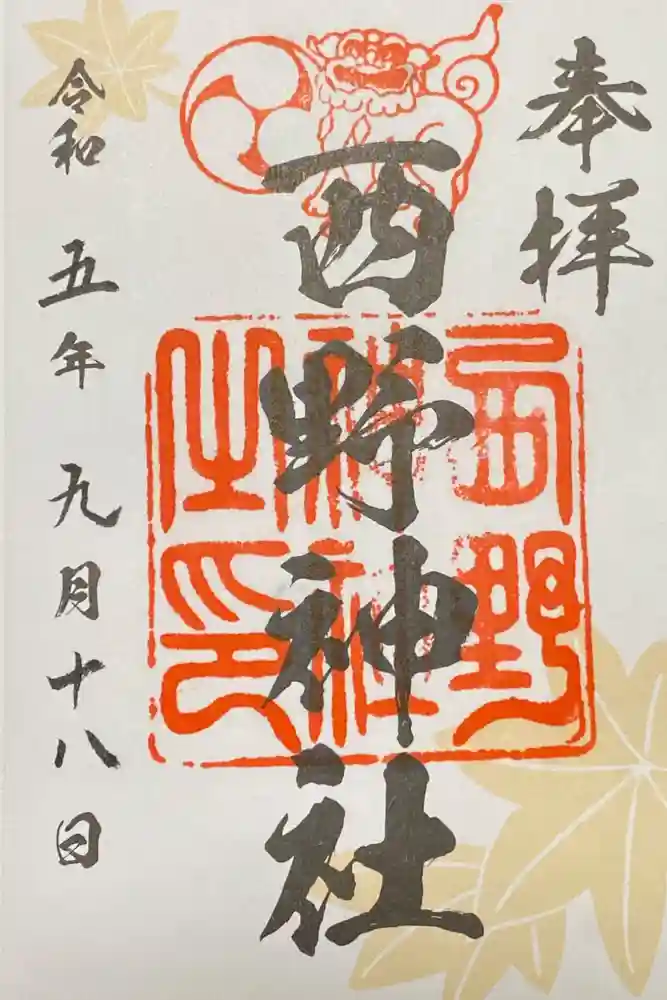 奉拝
西野神社
西野神社之印
令和五年九月十八日